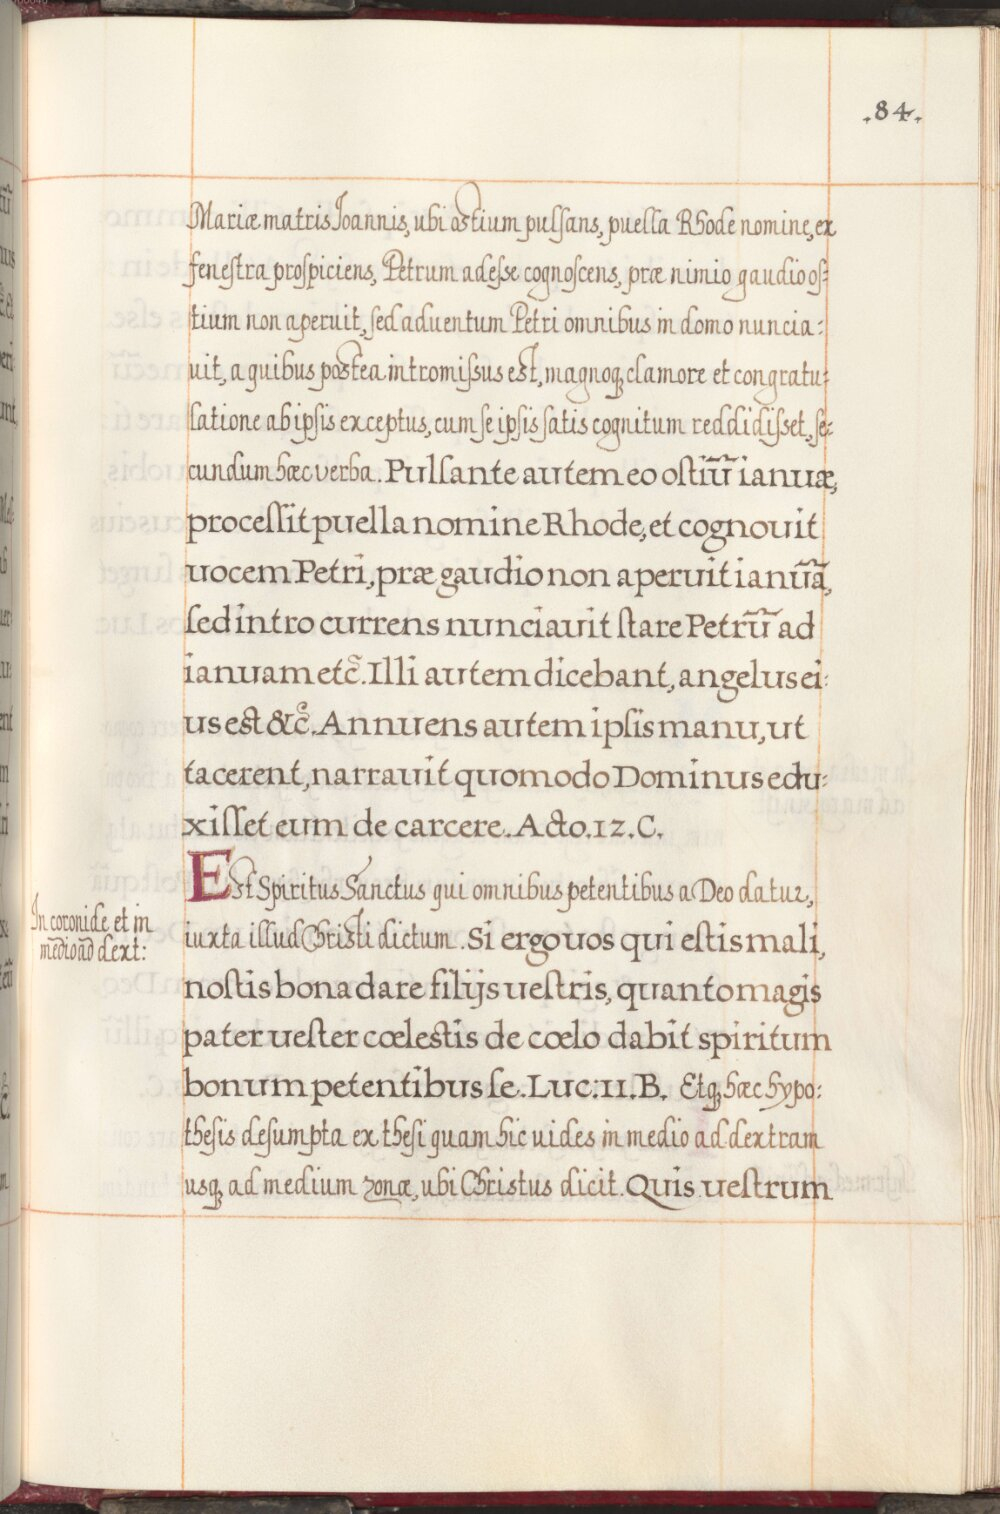 .84.
Mariæ matris Ioannis, ubi ostium pulsans, puella Rhode nomine, ex
fenestra prospiciens, Petrum adesse cognoscens, præ nimio gaudio os-
tium non aperuit, sed aduentum Petri omnibus in domo nuncia:
uit, a quibus postea intromissus est, magnoq; clamore et congratu-
latione ab ipsis exceptus, cum se ipsis satis cognitum reddidisset, se-
cundum hæc verba. Pulsante autem eo ostiũ ianuæ,
processit puella nomine Rhode, et cognouit
uocem Petri, præ gaudio non aperuit ianũã,
sed intro currens nunciauit stare Petrũ ad
ianuam etc̃. Illi autem dicebant, angelus ei:
us est &c̃. Annuens autem ipsis manu, ut
tacerent, narrauit quomodo Dominus edu:
xisset eum de carcere. Acto. 12. C.
Est Spiritus Sanctus qui omnibus petentibus a Deo datur,
In coronide et in
medio ad dext:
iuxta illud Christi dictum. Si ergo uos qui estis mali,
nostis bona dare filijs uestris, quanto magis
pater uester cœlestis de cœlo dabit spiritum
bonum petentibus se. Luc: 11. B. Etq; hæc hypo:
thesis desumpta ex thesi quam hic uides in medio ad dextram
usq; ad medium zonæ, ubi Christus dicit. Quis uestrum